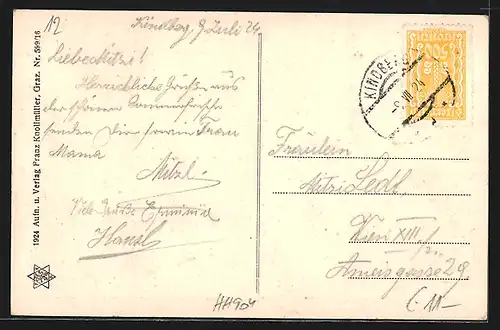 12
Kindberg, 9 Juli 24
Liebe Mitzi!
Herzlichste Grüße aus
der schönen Sommerfrische
senden Dir sowie Frau
Mama
Mitzl.
Viele Grüße
Hansl
1924 Aufn. u. Verlag Franz Knollmüller, Graz. Nr. 599/16
KINDBERG
VII 24
Fräulein
Mitzi Ledl
Wien XIII
Ameisgasse 29
HH904
€ 11-